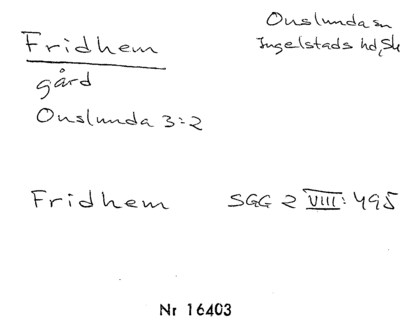 Onslunda sn
Fridhem
Ingelstads hd, Sk
gård
Onslunda 3:2
Fridhem SGG 2 VIII: 495
Nr 16403